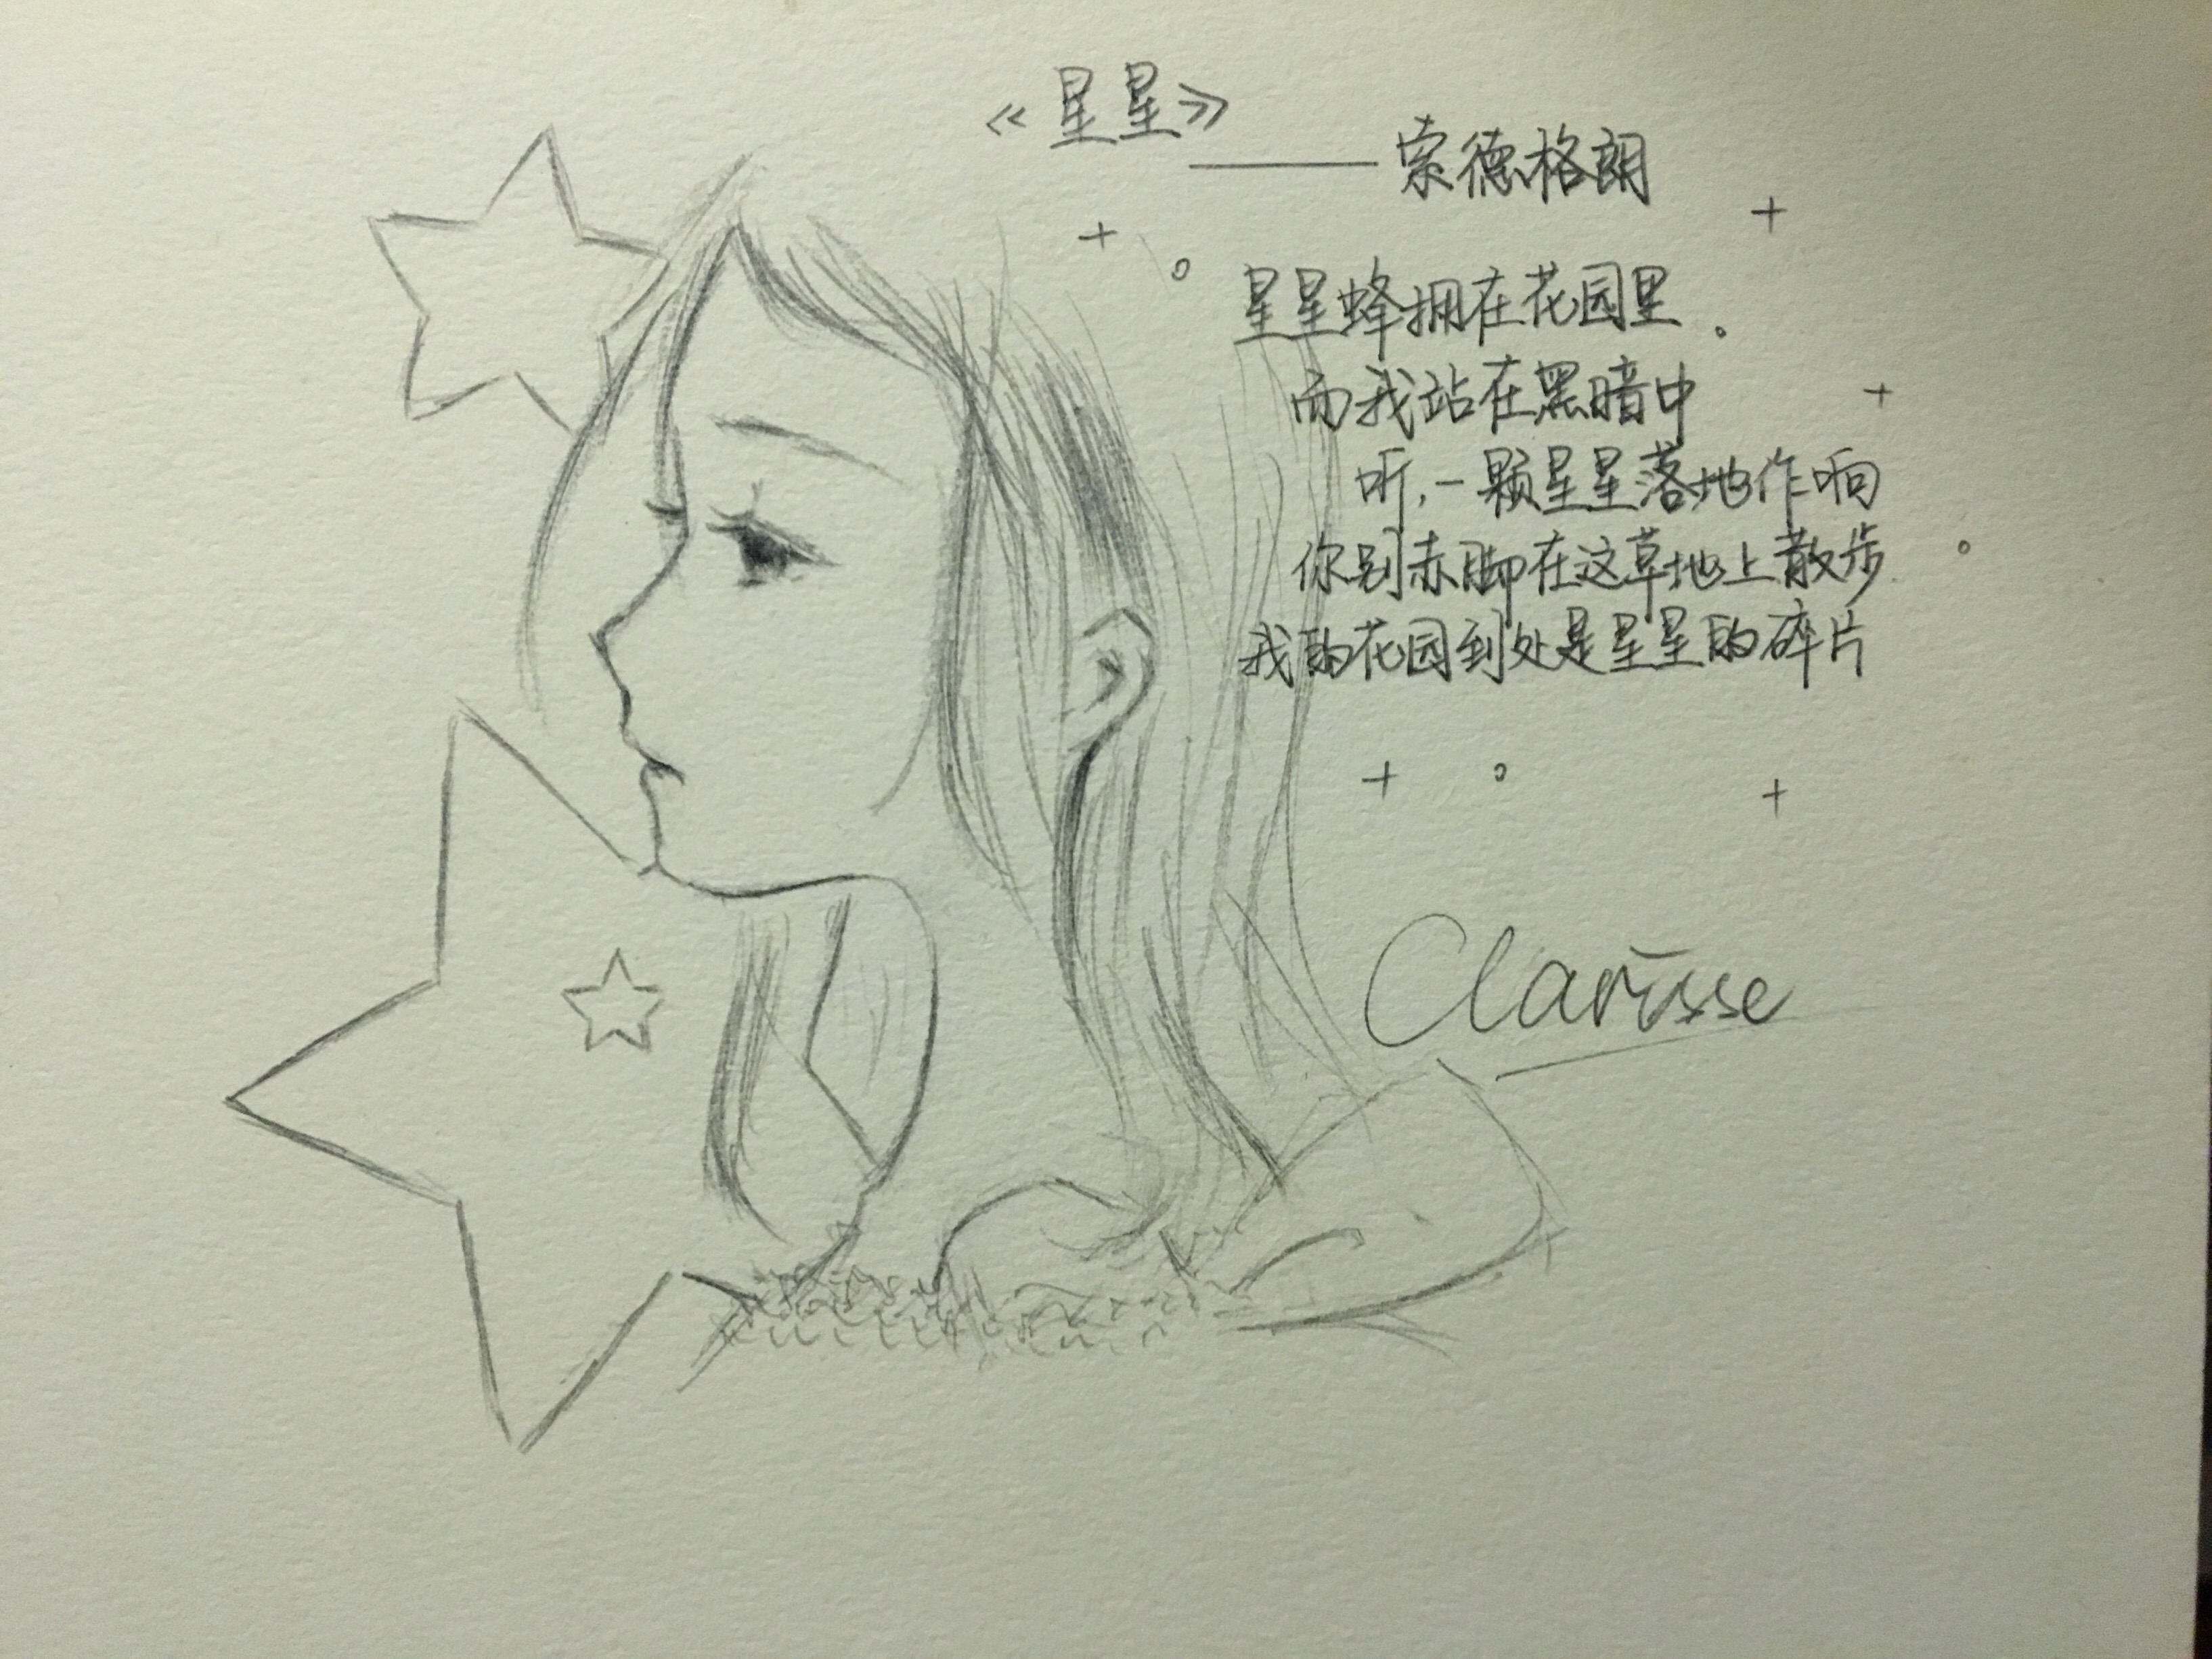 《星星》
——索德格朗
星星蜂拥在花园里.
而我站在黑暗中
听,一颗星星落地作响
你别赤脚在这草地上散步.
我的花园到处是星星的碎片
Clarisse